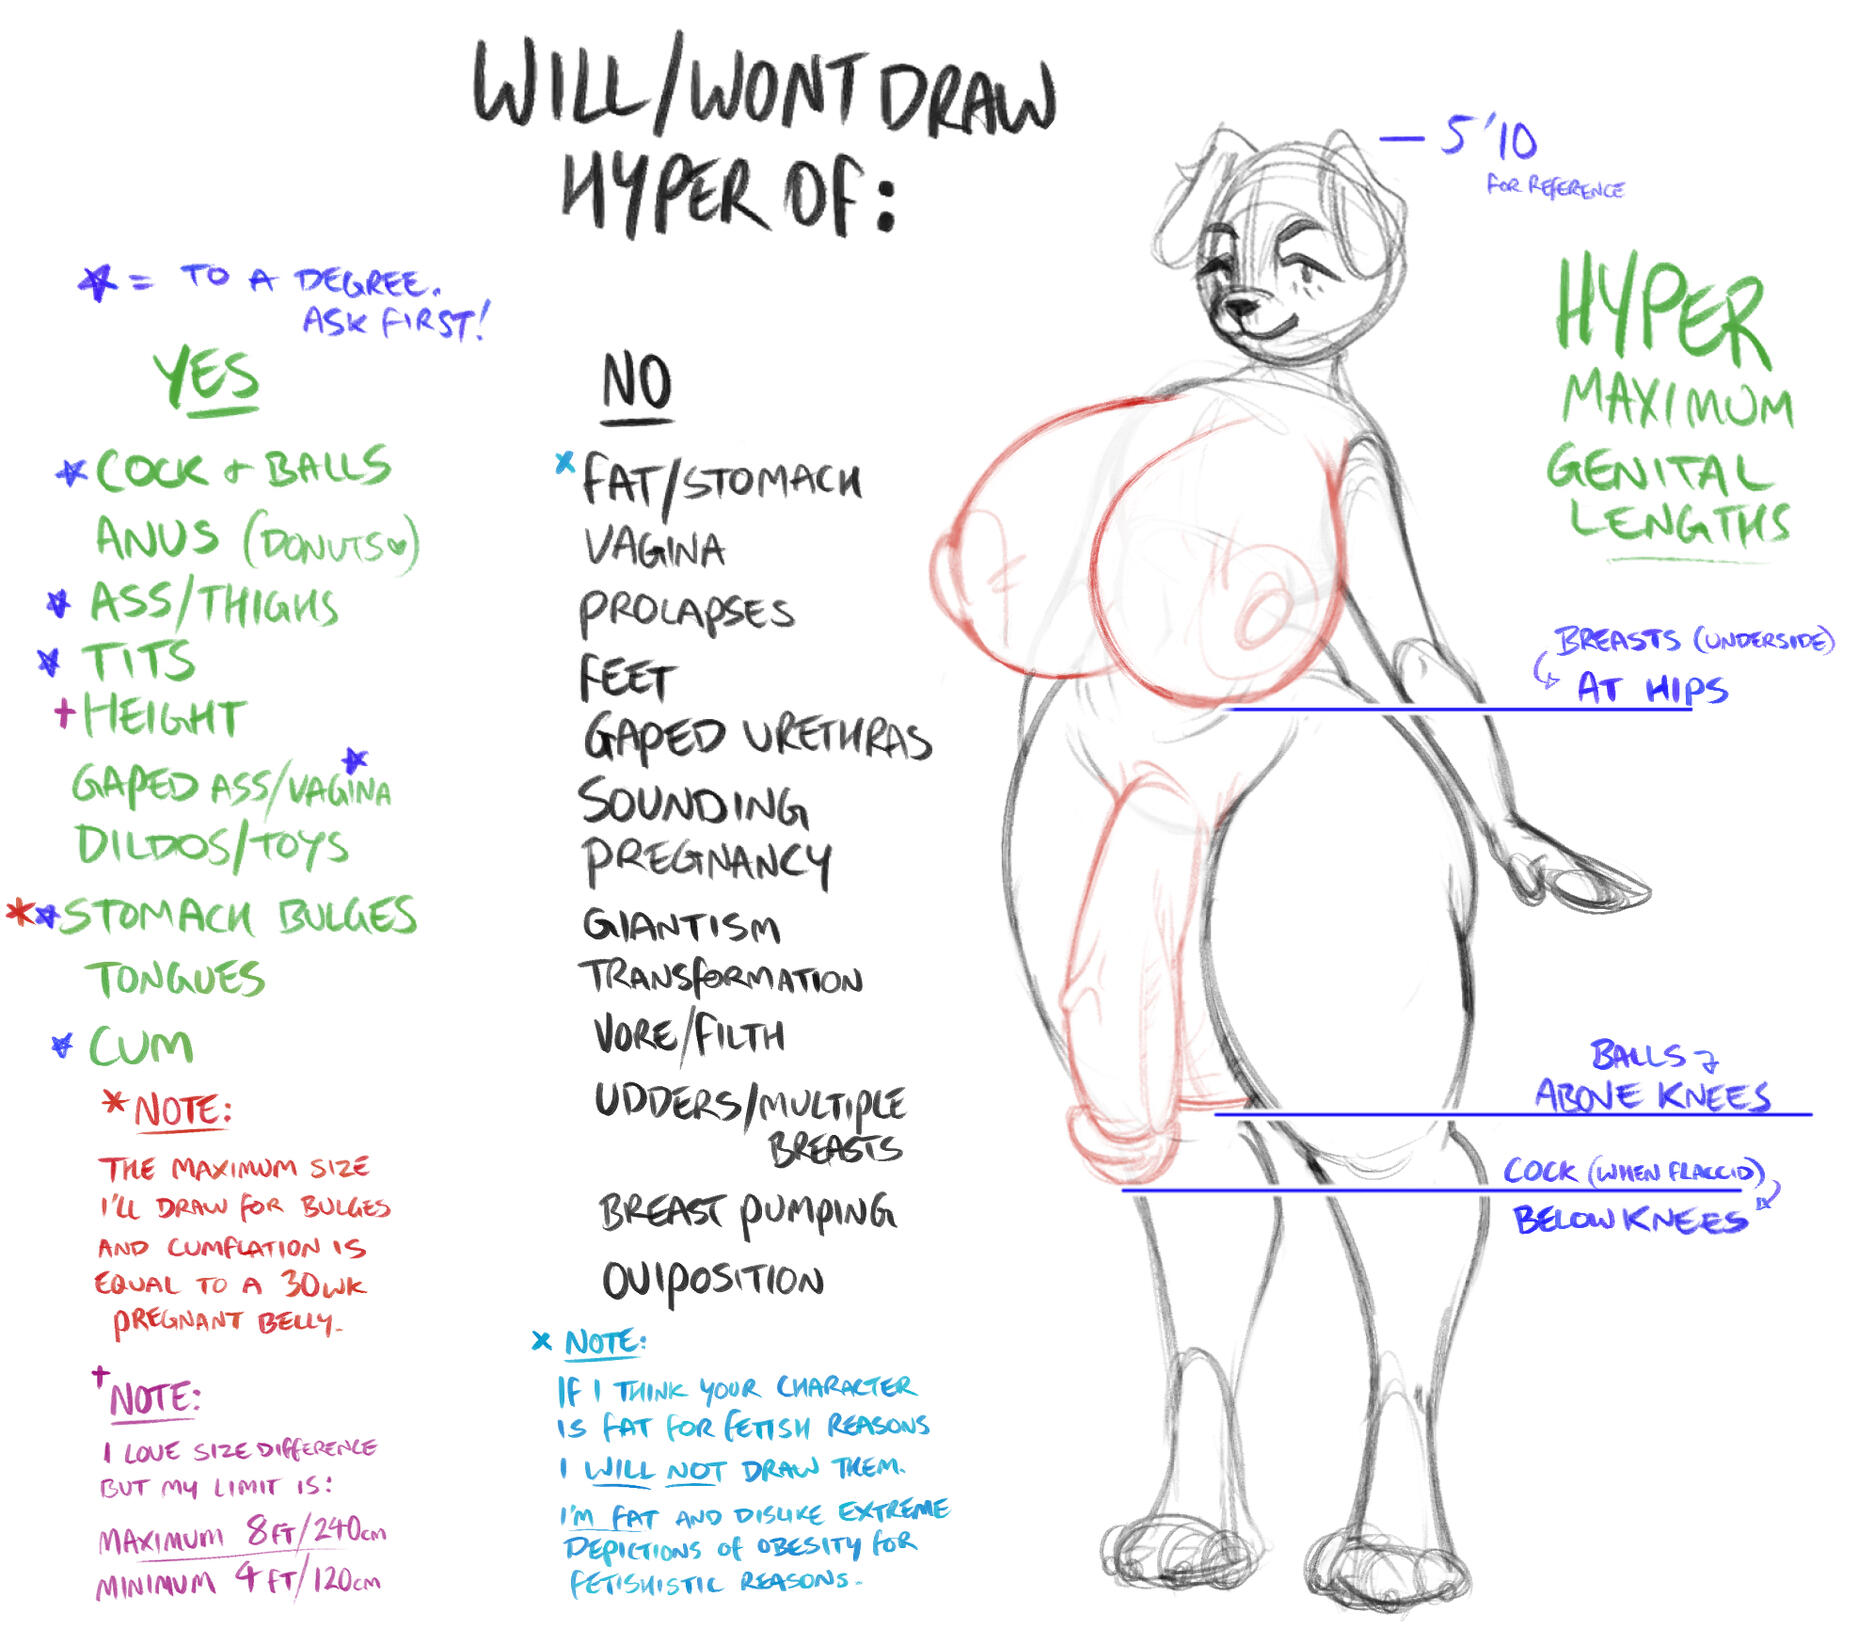 WILL/WONT DRAW
HYPER OF:
★ = TO A DEGREE.
ASK FIRST!
YES
★ COCK & BALLS
ANUS (DONUTS♥)
★ ASS/THIGHS
★ TITS
† HEIGHT
GAPED ASS/VAGINA ★
DILDOS/TOYS
*★ STOMACH BULGES
TONGUES
★ CUM
* NOTE:
THE MAXIMUM SIZE
I'LL DRAW FOR BULGES
AND CUMFLATION IS
EQUAL TO A 30WK
PREGNANT BELLY.
† NOTE:
I LOVE SIZE DIFFERENCE
BUT MY LIMIT IS:
MAXIMUM 8FT/240cm
MINIMUM 4FT/120cm
NO
x FAT/STOMACH
VAGINA
PROLAPSES
FEET
GAPED URETHRAS
SOUNDING
PREGNANCY
GIANTISM
TRANSFORMATION
VORE/FILTH
UDDERS/MULTIPLE
BREASTS
BREAST PUMPING
OVIPOSITION
x NOTE:
IF I THINK YOUR CHARACTER
IS FAT FOR FETISH REASONS
I WILL NOT DRAW THEM.
I'M FAT AND DISLIKE EXTREME
DEPICTIONS OF OBESITY FOR
FETISHISTIC REASONS.
— 5'10
FOR REFERENCE
HYPER
MAXIMUM
GENITAL
LENGTHS
BREASTS (UNDERSIDE)
AT HIPS
BALLS
ABOVE KNEES
COCK (WHEN FLACCID)
BELOW KNEES